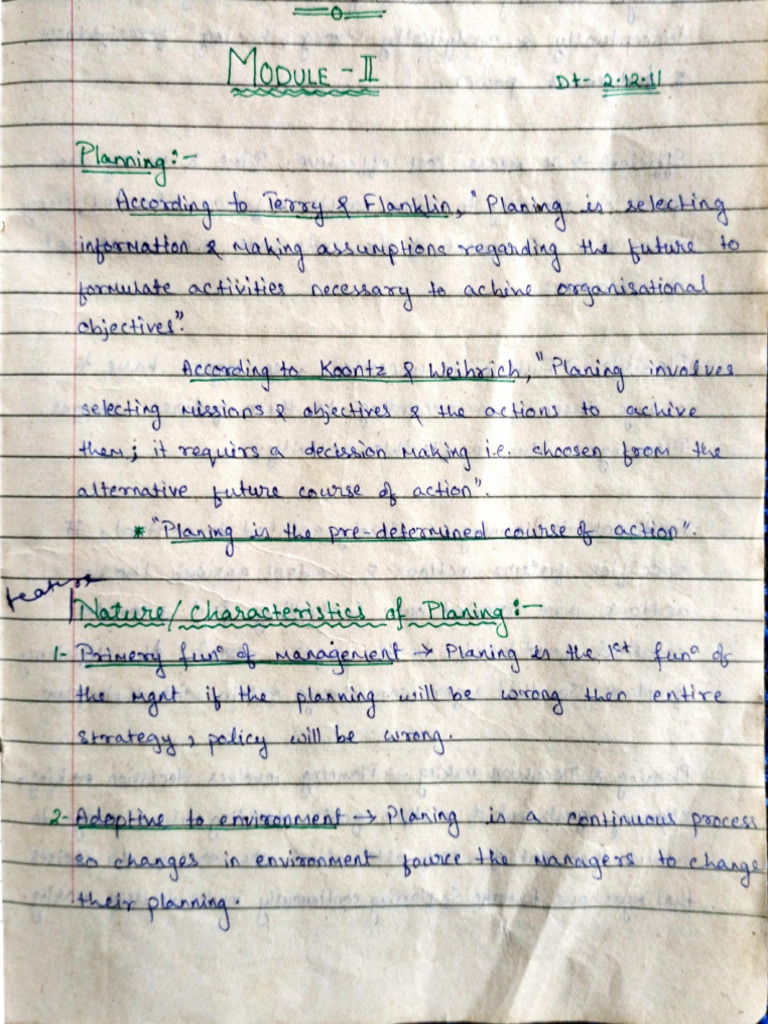 MODULE - II
Dt- 2.12.11
Planning:-
According to Terry & Flanklin, "Planing is selecting
information & making assumptions regarding the future to
formulate activities necessary to achive organisational
objectives".
According to Koontz & Weihrich, "Planing involves
selecting missions & objectives & the actions to achive
them; it requirs a decission making i.e. choosen from the
alternative future course of action".
* "Planing is the pre-determined course of action".
feature
Nature/Characteristics of Planing:-
1- Primery funⁿ of management → Planing is the 1st funⁿ of
the mgnt if the planning will be wrong then entire
strategy, policy will be wrong.
2- Adoptive to environment → Planing is a continuous process
so changes in environment fource the managers to change
their planning.